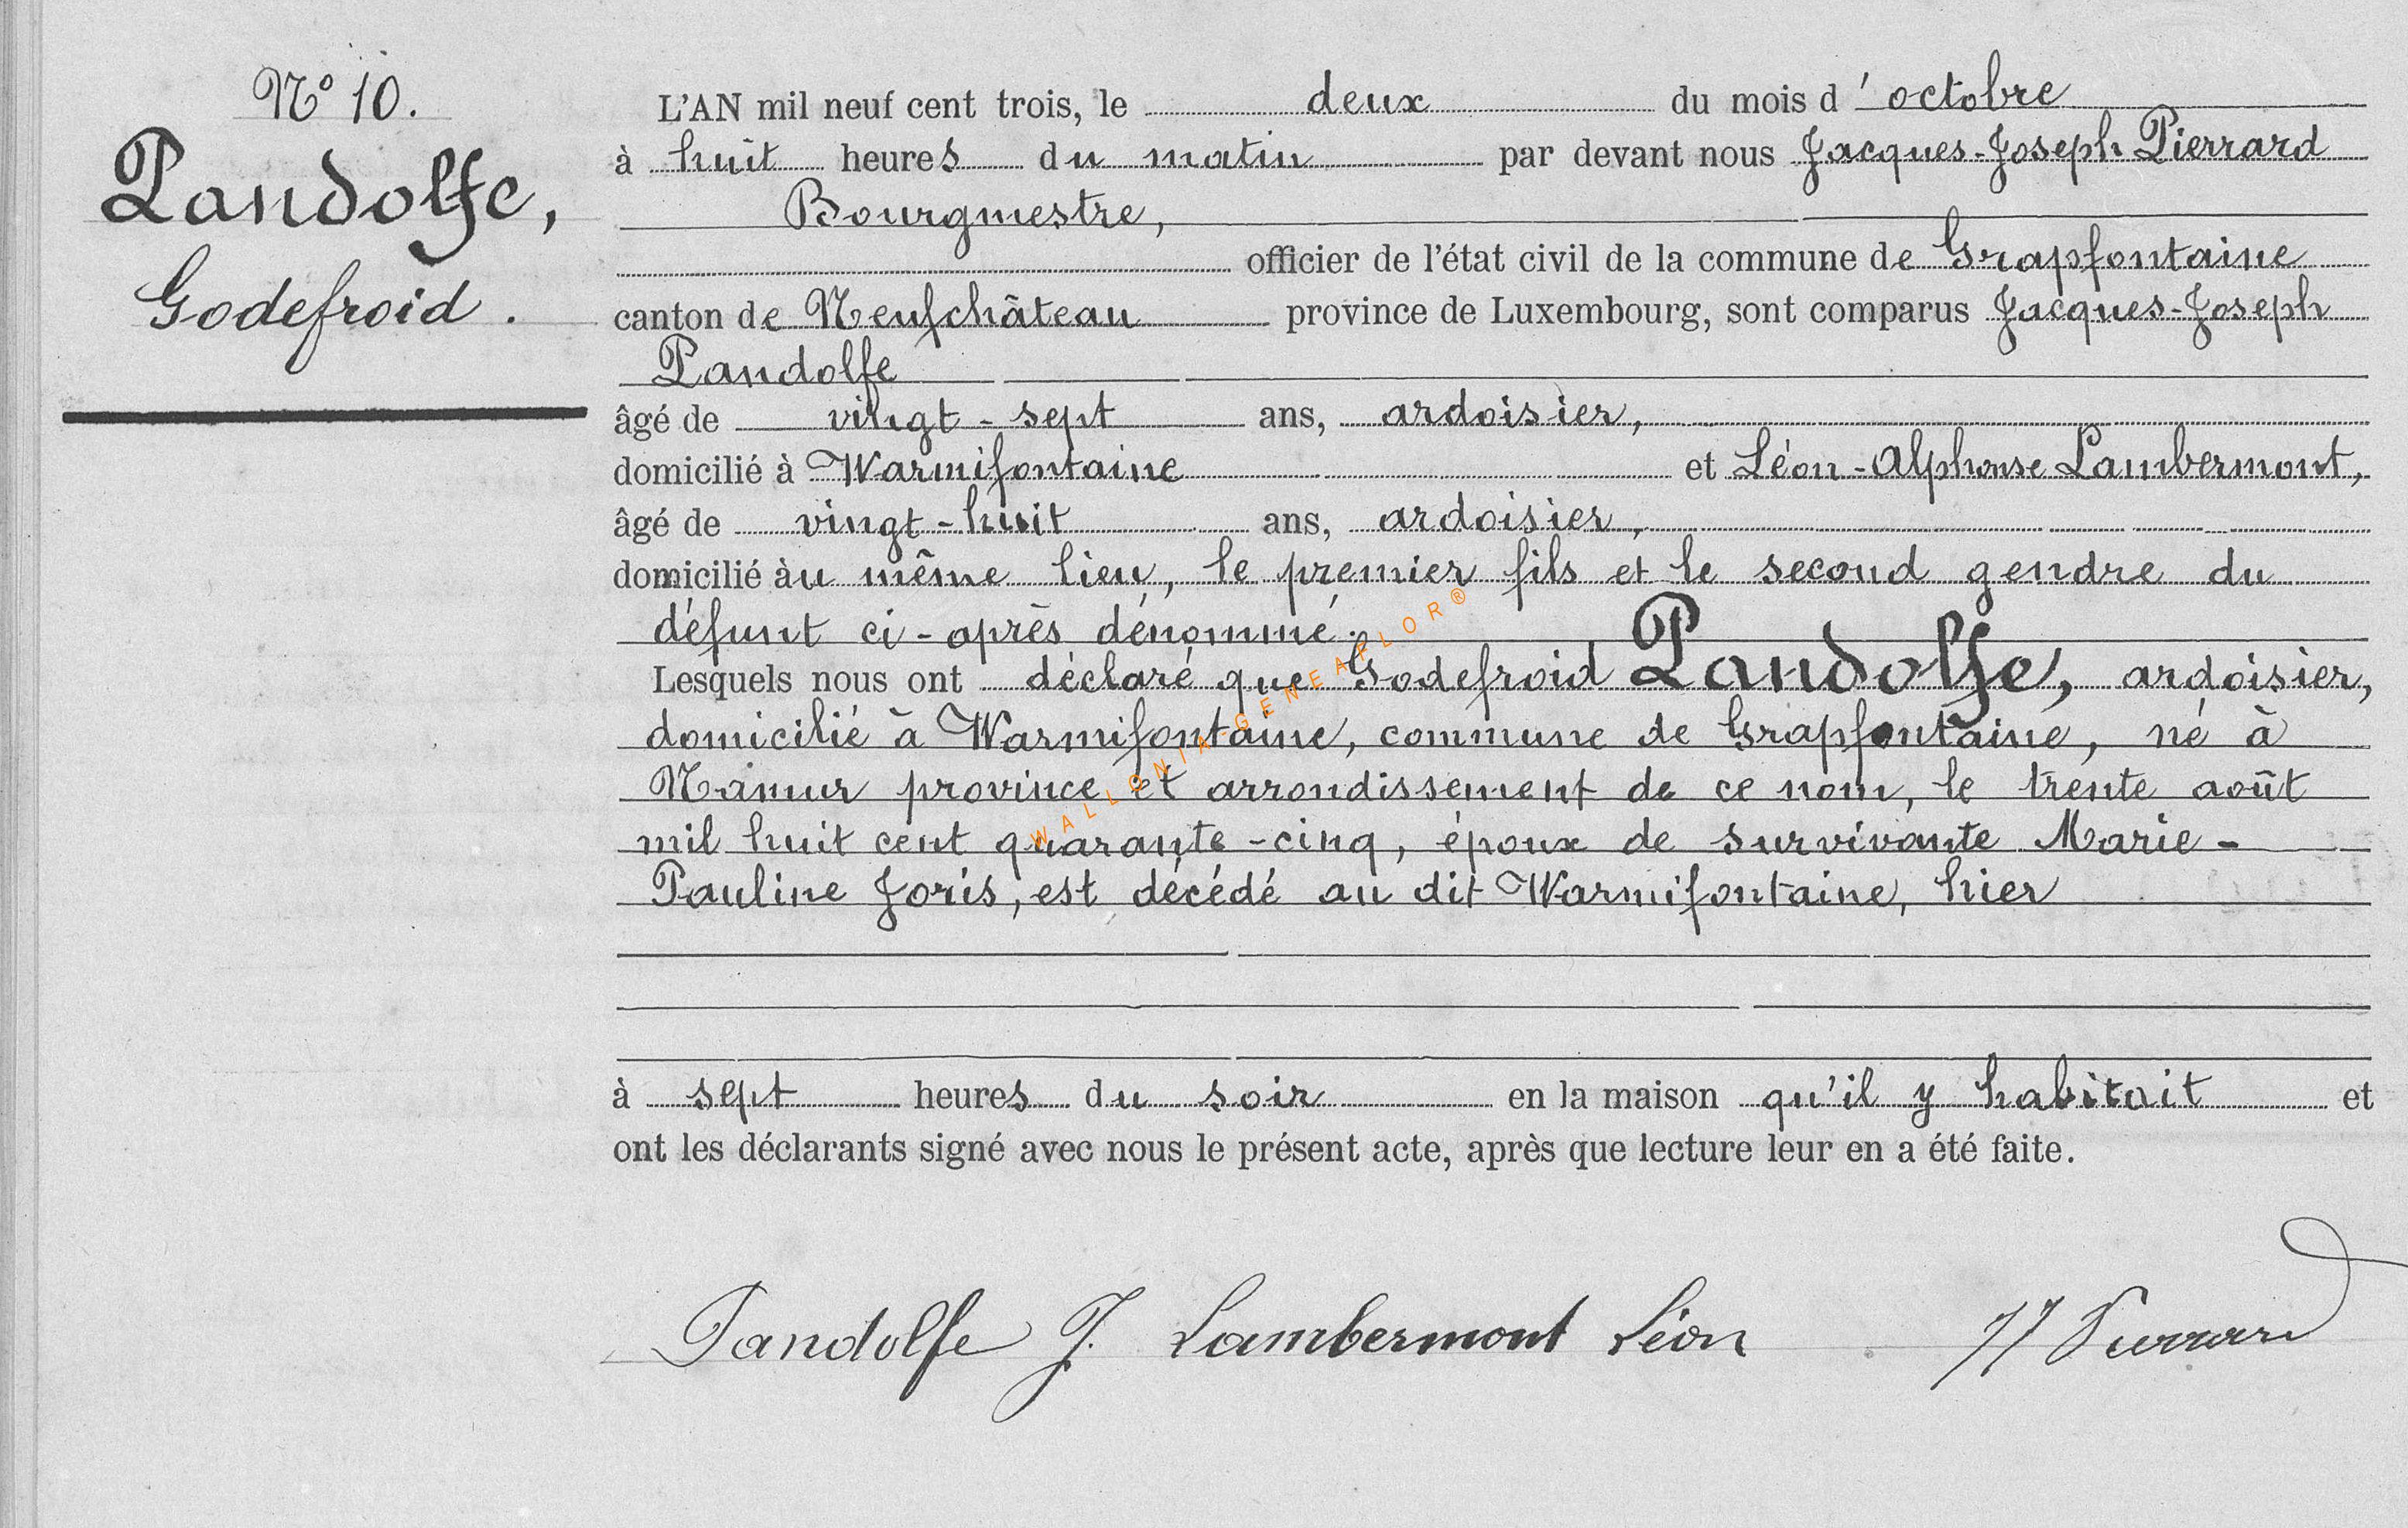 N° 10.
Pandolfe,
Godefroid.
L'AN mil neuf cent trois, le deux du mois d'octobre
à huit heures du matin par devant nous Jacques-Joseph Pierrard
Bourgmestre,
officier de l'état civil de la commune de Grapfontaine
canton de Neufchâteau province de Luxembourg, sont comparus Jacques-Joseph
Pandolfe
âgé de vingt-sept ans, ardoisier,
domicilié à Warmifontaine et Léon-Alphonse Lambermont,
âgé de vingt-huit ans, ardoisier,
domicilié àu même lieu, le premier fils et le second gendre du
défunt ci-après dénommé.
Lesquels nous ont déclaré que Godefroid Pandolfe, ardoisier,
domicilié à Warmifontaine, commune de Grapfontaine, né à
Namur province et arrondissement de ce nom, le trente août
mil huit cent quarante-cinq, époux de survivante Marie-
Pauline Joris, est décédé au dit Warmifontaine, hier
à sept heures du soir en la maison qu'il y habitait et
ont les déclarants signé avec nous le présent acte, après que lecture leur en a été faite.
Pandolfe J. Lambermont Léon JJ Pierrard
WALLONIA-GENEAFLOR®